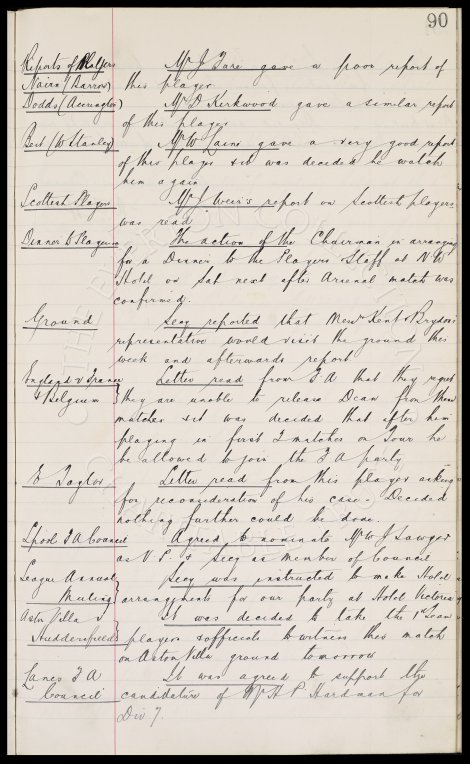 90
Reports of Players Mr J. Fare gave a poor report of
Nairn (Barrow) this player
Dodds (Accrington) Mr D Kirkwood gave a similar report
of this player
Best (W Stanley) Mr W. Laini gave a very good report
of this player & it was decided he watch
him again
Scottish Players Mr J Weir's report on Scottish players
was read
Dinner to Players The action of the Chairman in arranging
for a Dinner to the Players & Staff at N.W.
Hotel on Sat next after Arsenal match was
confirmed.
Ground Secy reported that Messrs Kent & Brydon's
representative would visit the ground this
week and afterwards report
England v France Letter read from F A that they regret
& Belgium } they are unable to release Dean from these
matches & it was decided that after him
playing in first 2 matches on Tour he
be allowed to join the F A party
E Taylor Letter read from this player asking
for reconsideration of his case - Decided
nothing further could be done.
Lpool F A Council Agreed to nominate Mr W J Sawyer
as V.P. & Secy as member of Council
League Annual Secy was instructed to make Hotel
Meeting } arrangements for our party at Hotel Victoria
Aston Villa v It was decided to take the 1st Team
Huddersfield } players & officials to witness this match
on Aston Villa ground tomorrow
Lancs F A It was agreed to support the
Council candidature of Mr H P Hardman for
Div 7.